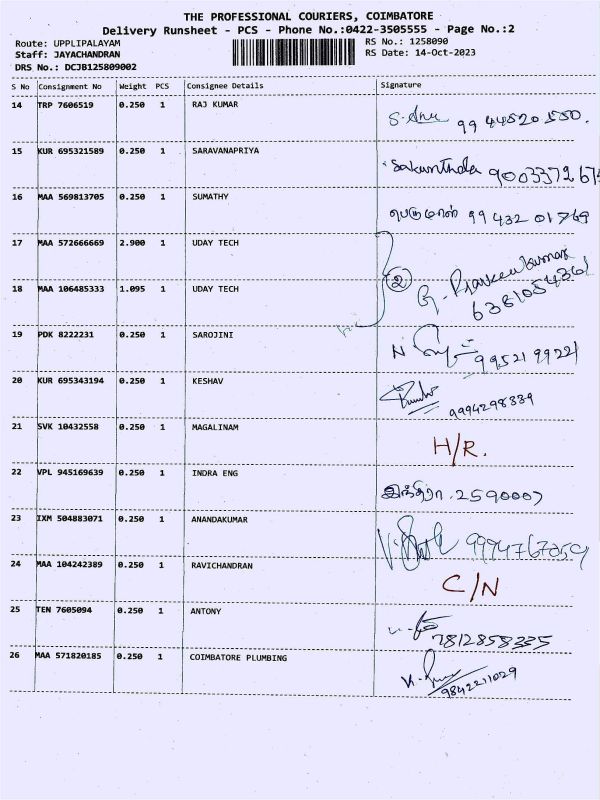 THE PROFESSIONAL COURIERS, COIMBATORE
Delivery Runsheet - PCS - Phone No.:0422-3505555 - Page No.:2
Route: UPPLIPALAYAM RS No.: 1258090
Staff: JAYACHANDRAN RS Date: 14-Oct-2023
DRS No.: DCJB125809002
S No Consignment No Weight PCS Consignee Details Signature
14 TRP 7606519 0.250 1 RAJ KUMAR
15 KUR 695321589 0.250 1 SARAVANAPRIYA Sakunthala
16 MAA 569813705 0.250 1 SUMATHY பெருமாள் 99432 01769
17 MAA 572666669 2.900 1 UDAY TECH
② G. Praveen kumar
18 MAA 106485333 1.095 1 UDAY TECH
19 PDK 8222231 0.250 1 SAROJINI
20 KUR 695343194 0.250 1 KESHAV 9994298339
21 SVK 10432558 0.250 1 MAGALINAM H/R.
22 VPL 945169639 0.250 1 INDRA ENG இந்திரா. 2590007
23 IXM 504883071 0.250 1 ANANDAKUMAR
24 MAA 104242389 0.250 1 RAVICHANDRAN C/N
25 TEN 7605094 0.250 1 ANTONY 7812858335
26 MAA 571820185 0.250 1 COIMBATORE PLUMBING 9842211029